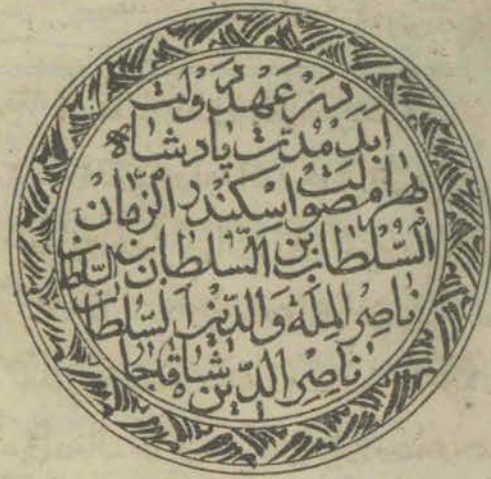 در عهد دولت
ابد مدت پادشاه
بهرام صولت اسکندر الزمان
السلطان بن السلطان بن السلطان
ناصر الملة والدین السلطان
ناصر الدین شاه قاجار